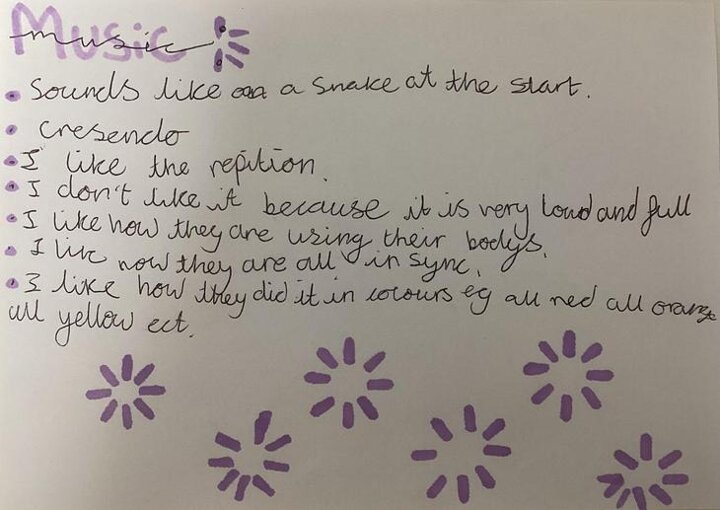 Music
music
• Sounds like a snake at the start.
• cresendo
• I like the repition.
• I don't like it because it is very loud and full
• I like how they are using their bodys.
• I lik how they are all in sync.
• I like how they did it in colours eg all red all orange
all yellow ect.